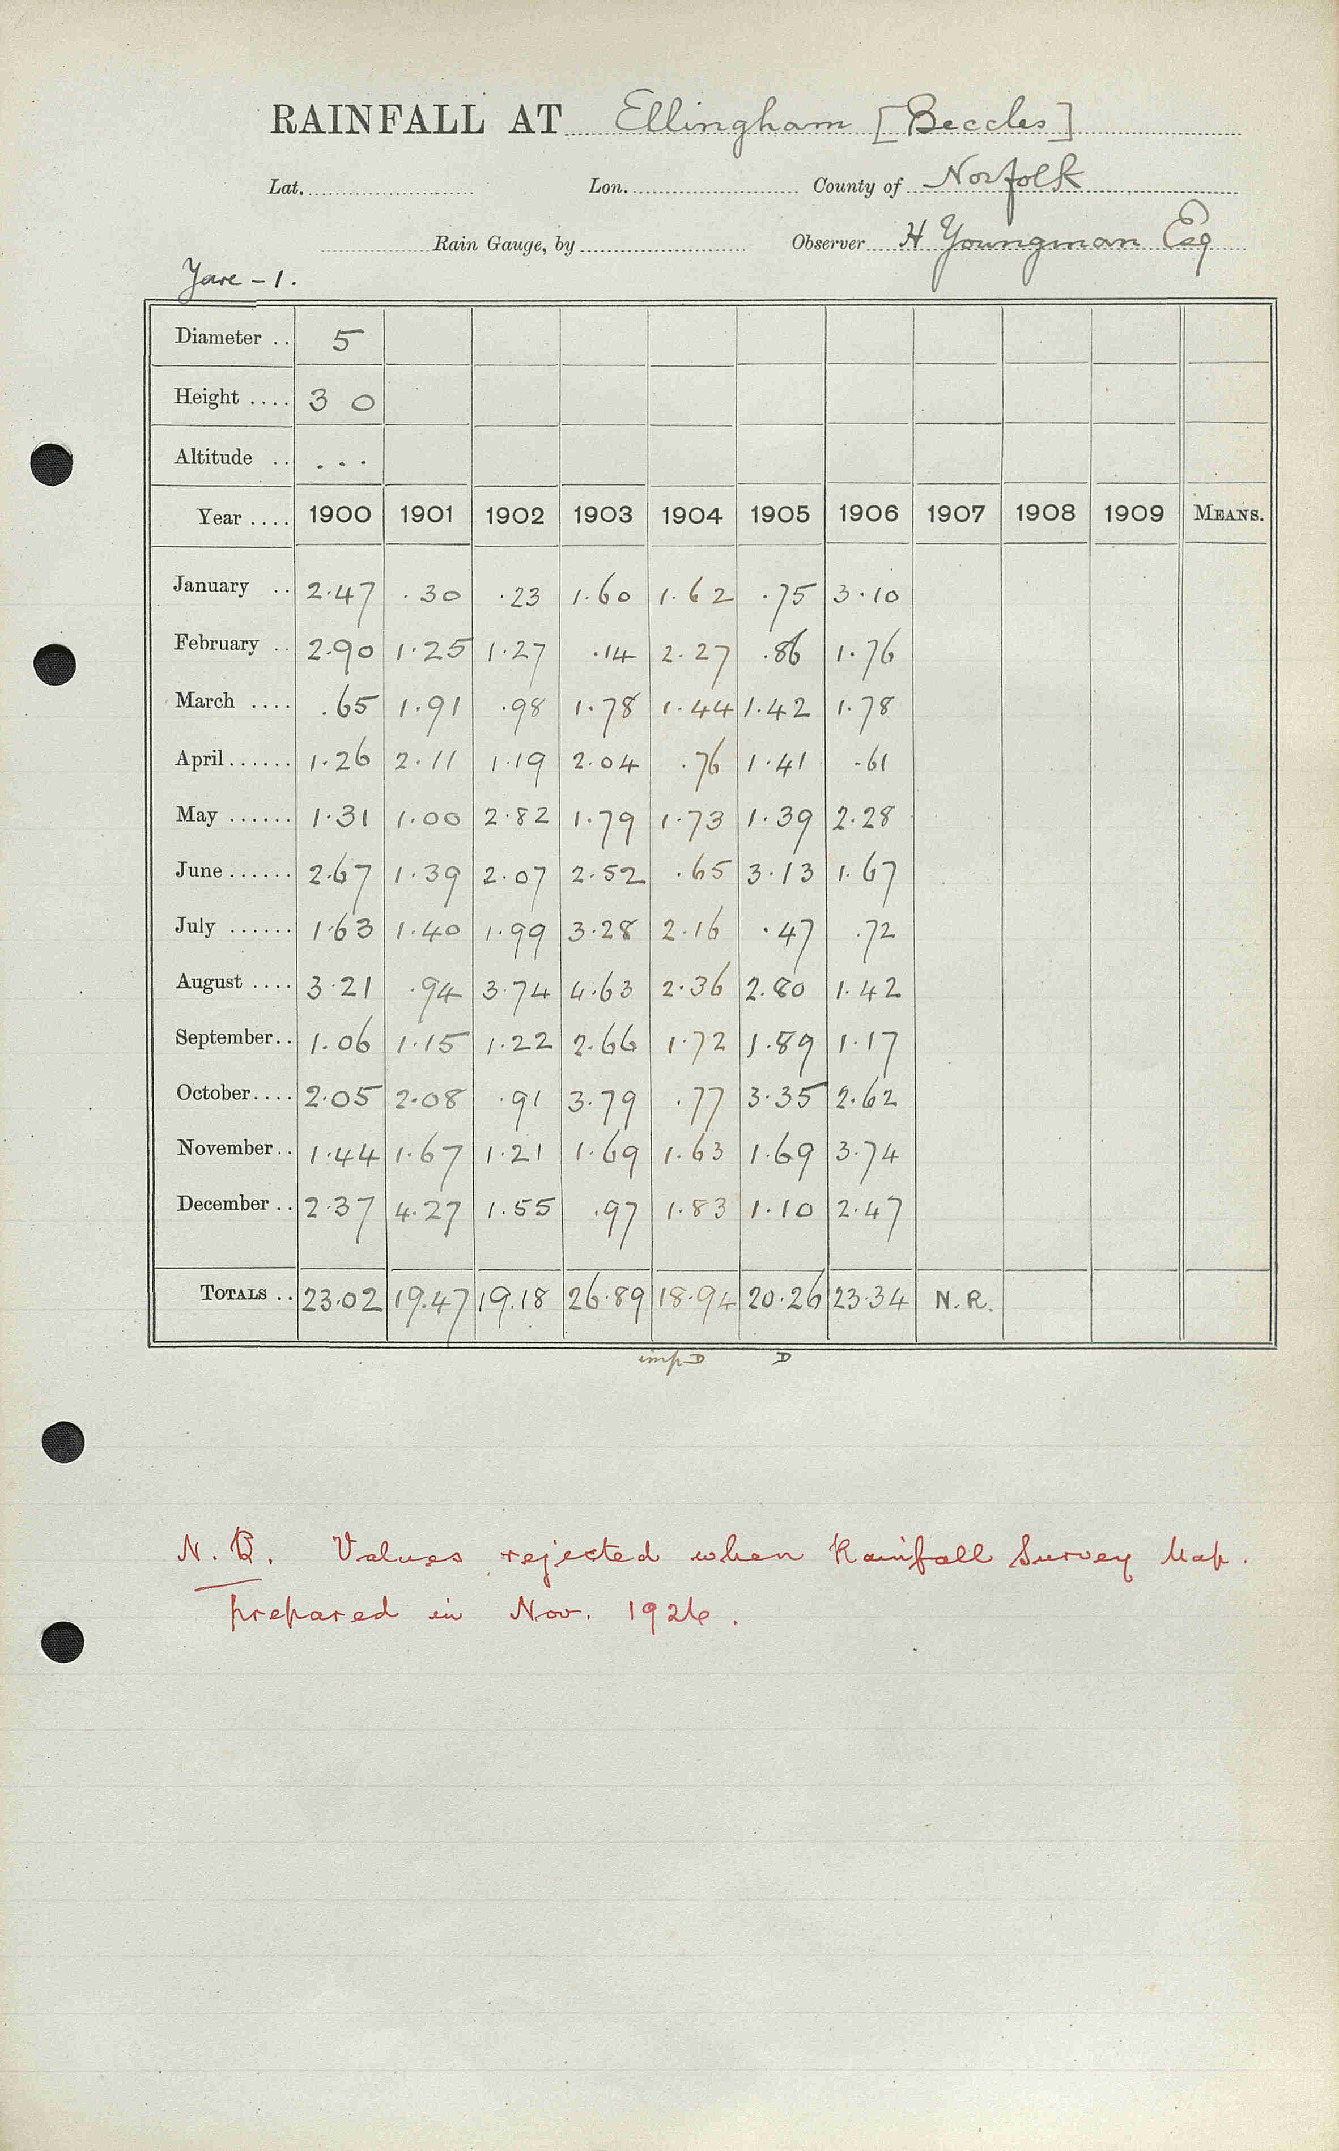 RAINFALL AT Ellingham [Beccles]
Lat. Lon. County of Norfolk
Rain Gauge, by Observer H Youngman Esq
Yare - 1.
Diameter .. 5
Height .... 3 0
Altitude .. ...
Year .... 1900 1901 1902 1903 1904 1905 1906 1907 1908 1909 MEANS.
January .. 2.47 .30 .23 1.60 1.62 .75 3.10
February .. 2.90 1.25 1.27 .14 2.27 .86 1.76
March .... .65 1.91 .98 1.78 1.44 1.42 1.78
April ...... 1.26 2.11 1.19 2.04 .76 1.41 .61
May ...... 1.31 1.00 2.82 1.79 1.73 1.39 2.28
June ...... 2.67 1.39 2.07 2.52 .65 3.13 1.67
July ...... 1.63 1.40 1.99 3.28 2.16 .47 .72
August .... 3.21 .94 3.74 4.63 2.36 2.80 1.42
September .. 1.06 1.15 1.22 2.66 1.72 1.89 1.17
October .... 2.05 2.08 .91 3.79 .77 3.35 2.62
November .. 1.44 1.67 1.21 1.69 1.63 1.69 3.74
December .. 2.37 4.27 1.55 .97 1.83 1.10 2.47
TOTALS .. 23.02 19.47 19.18 26.89 18.94 20.26 23.34 N.R.
imp D D
N.B. Values rejected when Rainfall Survey Map.
prepared in Nov. 1926.